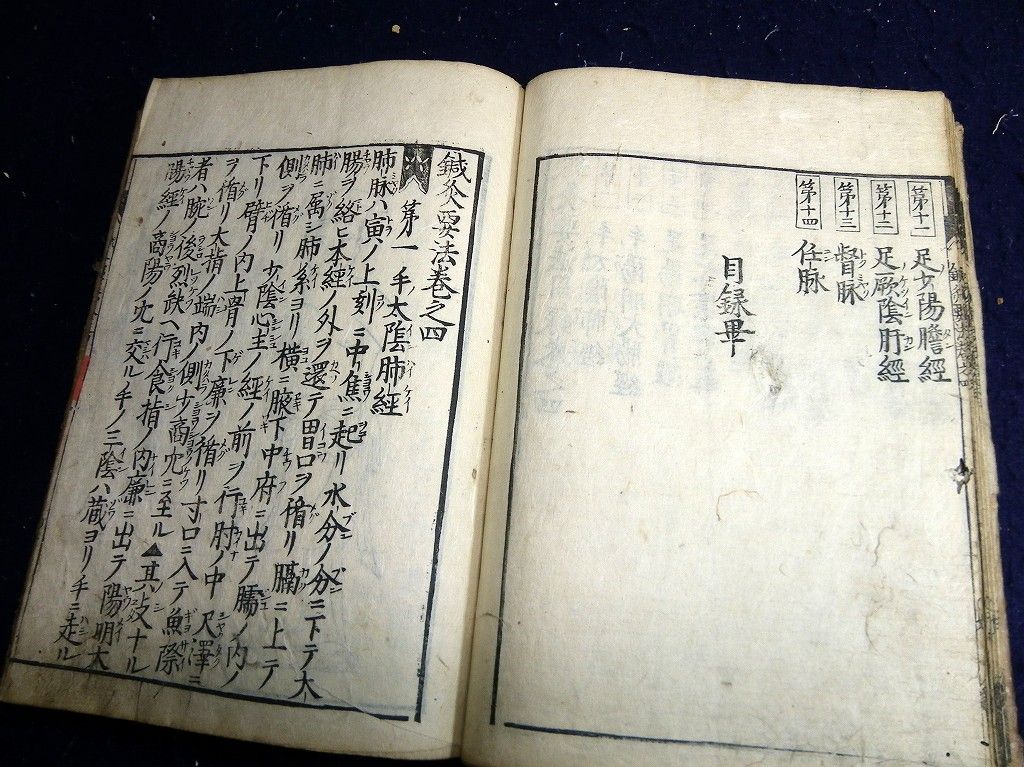 第十一 足少陽膽經
第十二 足厥陰肝經
第十三 督脉
第十四 任脉
目録畢
鍼灸要法巻之四
第一 手太陰肺經
肺脉ハ寅ノ上刻ニ中焦ニ起リ水分ノ分ニ下テ大
腸ヲ絡ヒ本經ノ外ヲ還テ胃口ヲ循リ膈ニ上テ
肺ニ属シ肺系ヨリ横ニ腋下中府ニ出テ臑ノ内ノ
側ヲ循リ少陰心主ノ經ノ前ヲ行肘ノ中尺澤ニ
下リ臂ノ内上骨ノ下廉ヲ循リ寸口ニ入テ魚際
ヲ循リ大指ノ端内ノ側少商穴ニ至ル▲其支ナル
者ハ腕ノ後烈缺ヘ行食指ノ内廉ニ出テ陽明大
膓經ノ商陽ノ穴ニ交ル手ノ三陰ハ蔵ヨリ手ニ走ル